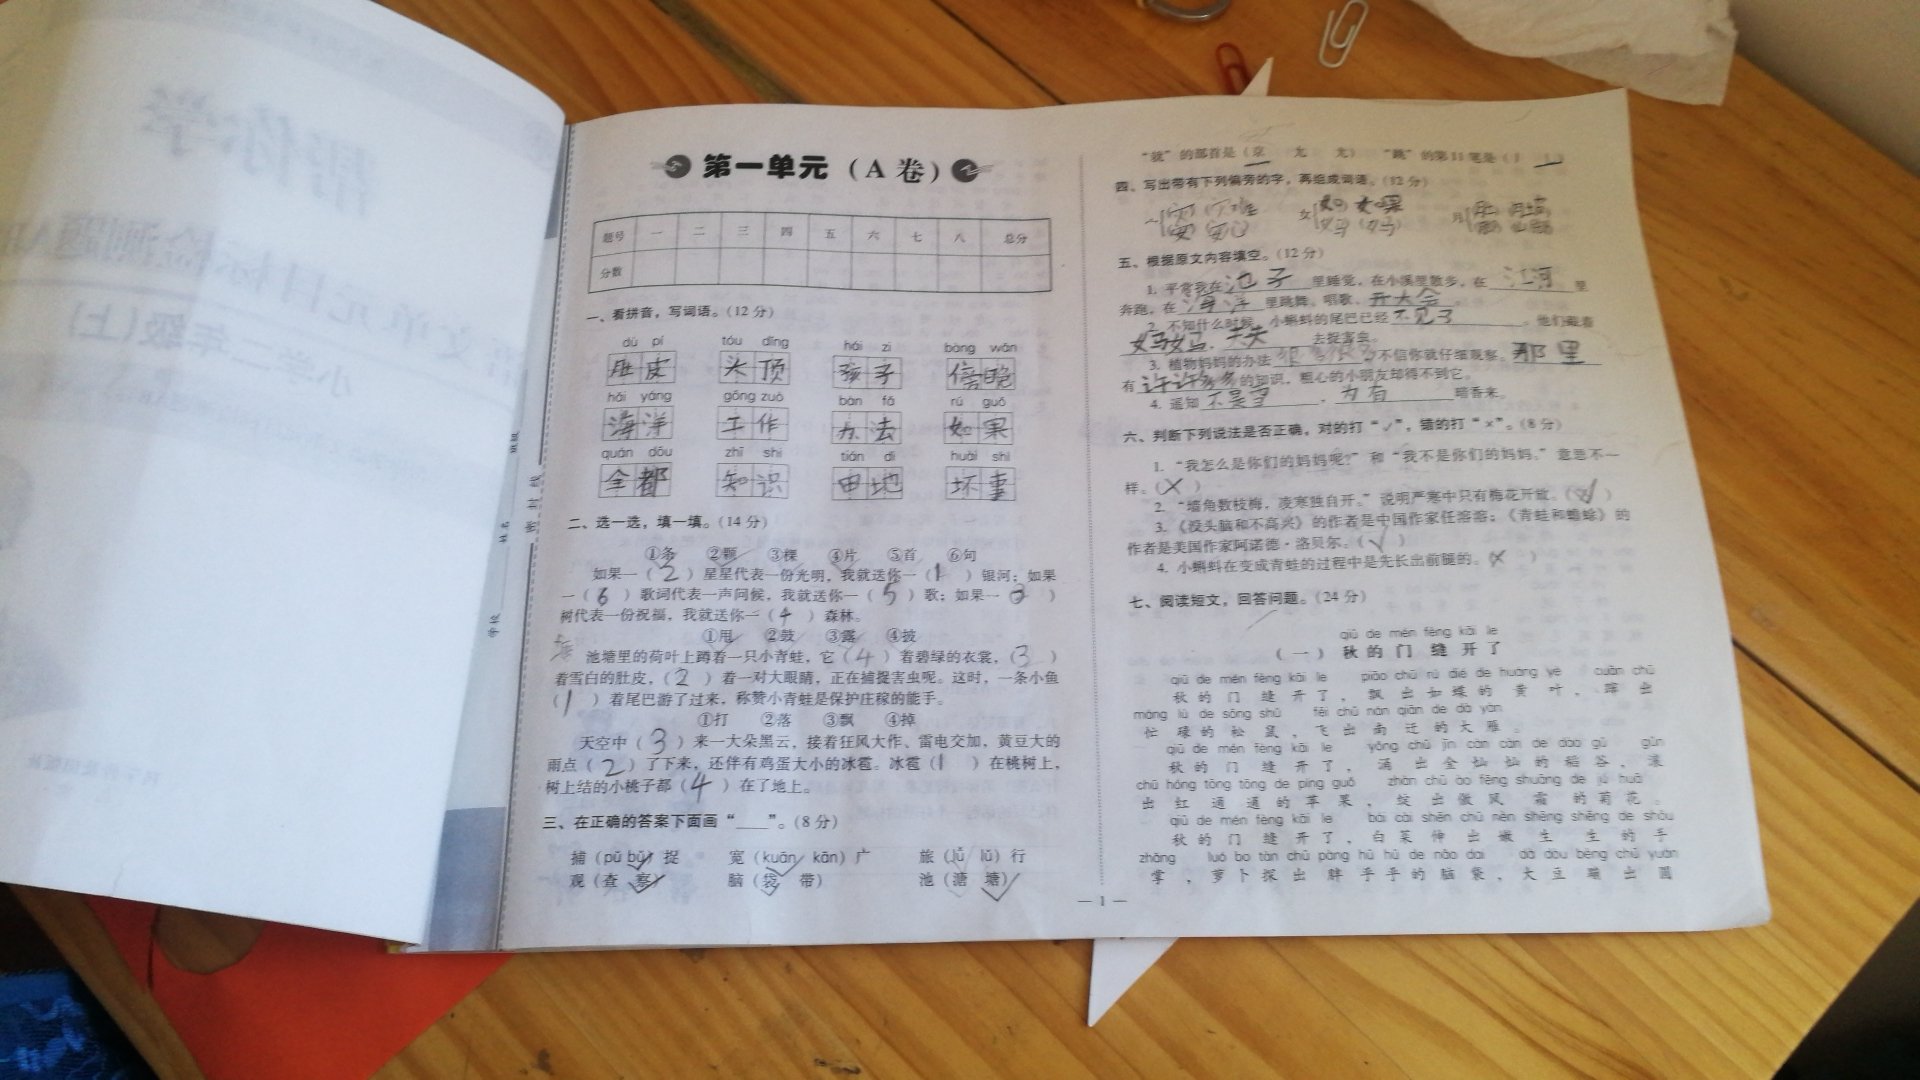 第一单元（A卷）
题号 一 二 三 四 五 六 七 八 总分
分数
一、看拼音，写词语。（12分）
dù pí tóu dǐng hái zi bàng wǎn
肚皮 头顶 孩子 傍晚
hǎi yáng gōng zuò bàn fǎ rú guǒ
海洋 工作 办法 如果
quán dōu zhī shi tián dì huài shì
全都 知识 田地 坏事
二、选一选，填一填。（14分）
①条 ②颗 ③棵 ④片 ⑤首 ⑥句
如果一（2）星星代表一份光明，我就送你一（1）银河；如果
一（6）歌词代表一声问候，我就送你一（5）歌；如果一（3）
树代表一份祝福，我就送你一（4）森林。
①甩 ②鼓 ③露 ④披
池塘里的荷叶上蹲着一只小青蛙，它（4）着碧绿的衣裳，（3）
着雪白的肚皮，（2）着一对大眼睛，正在捕捉害虫呢。这时，一条小鱼
（1）着尾巴游了过来，称赞小青蛙是保护庄稼的能手。
①打 ②落 ③飘 ④掉
天空中（3）来一大朵黑云，接着狂风大作、雷电交加，黄豆大的
雨点（2）了下来，还伴有鸡蛋大小的冰雹。冰雹（1）在桃树上，
树上结的小桃子都（4）在了地上。
三、在正确的答案下面画“____”。（8分）
捕（pǔ bǔ）捉 宽（kuān kān）广 旅（lǚ lǔ）行
观（查 察） 脑（袋 带） 池（溏 塘）
“就”的部首是（京 尤 尢） “跳”的第11笔是（
四、写出带有下列偏旁的字，再组成词语。（12分）
女 如 如果
妈 妈妈
月
五、根据原文内容填空。（12分）
1. 平常我在池子里睡觉，在小溪里散步，在江河里
奔跑，在海洋里跳舞、唱歌、开大会。
2. 不知什么时候，小蝌蚪的尾巴已经不见了。他们跟着
妈妈，天天去捉害虫。
3. 植物妈妈的办法很多很多，不信你就仔细观察。那里
有许许多多的知识，粗心的小朋友却得不到它。
4. 遥知不是雪，为有暗香来。
六、判断下列说法是否正确，对的打“✓”，错的打“×”。（8分）
1. “我怎么是你们的妈妈呢？”和“我不是你们的妈妈。”意思不一
样。（×）
2. “墙角数枝梅，凌寒独自开。”说明严寒中只有梅花开放。（✓）
3. 《没头脑和不高兴》的作者是中国作家任溶溶；《青蛙和蟾蜍》的
作者是美国作家阿诺德·洛贝尔。（✓）
4. 小蝌蚪在变成青蛙的过程中是先长出前腿的。（×）
七、阅读短文，回答问题。（24分）
qiū de mén fèng kāi le
（一）秋的门缝开了
qiū de mén fèng kāi le piāo chū rú dié de huáng yè cuān chū
秋的门缝开了，飘出如蝶的黄叶，蹿出
máng lù de sōng shǔ fēi chū nán qiān de dà yàn
忙碌的松鼠，飞出南迁的大雁。
qiū de mén fèng kāi le yǒng chū jīn càn càn de dào gǔ gǔn
秋的门缝开了，涌出金灿灿的稻谷，滚
chū hóng tōng tōng de píng guǒ zhàn chū ào fēng shuāng de jú huā
出红通通的苹果，绽出傲风霜的菊花。
qiū de mén fèng kāi le bái cài shēn chū nèn shēng shēng de shǒu
秋的门缝开了，白菜伸出嫩生生的手
zhǎng luó bo tàn chū pàng hū hū de nǎo dai dà dòu bèng chū yuán
掌，萝卜探出胖乎乎的脑袋，大豆蹦出圆
— 1 —
学校
姓名
班级
密封线